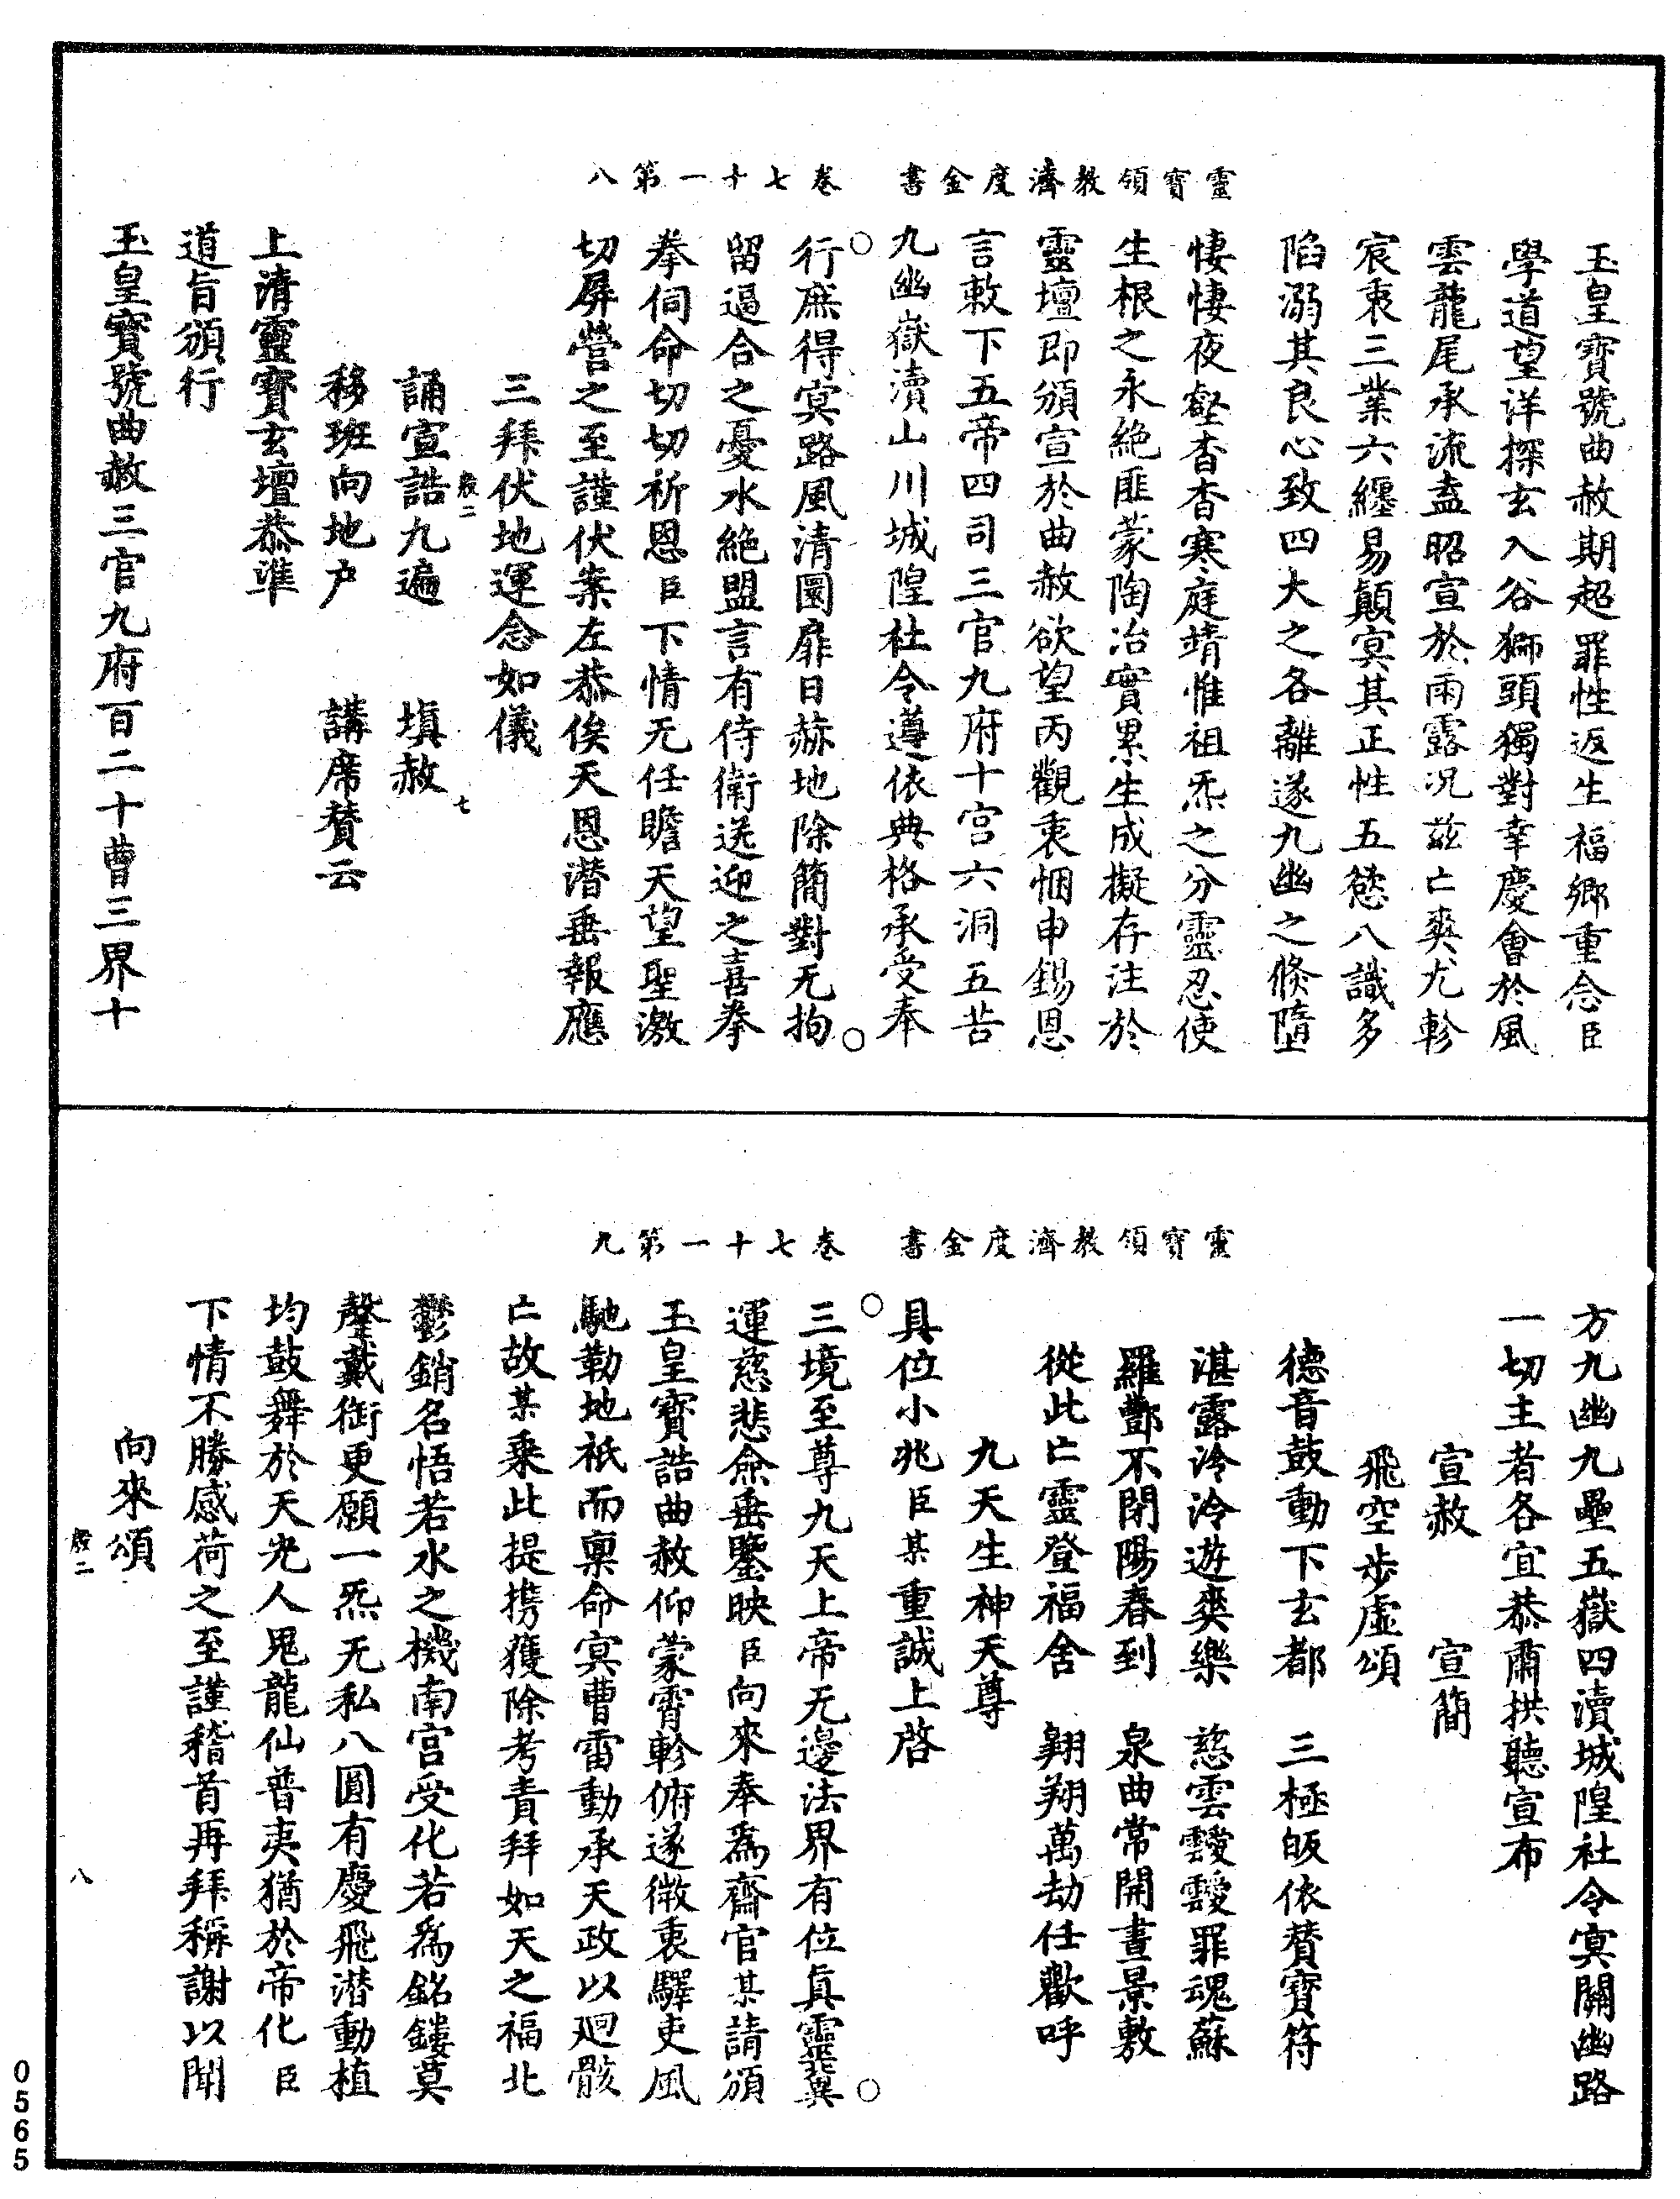 靈寶領教濟度金書　卷七十一第八
玉皇寶號曲赦期超罪性返生福鄉重念臣
學道望洋探玄入谷獅頭獨對幸慶會於風
雲龍尾承流盍昭宣於雨露況茲亡爽尤軫
宸衷三業六纏易顛冥其正性五慾八識多
陷溺其良心致四大之各離遂九幽之倏墮
悽悽夜壑杳杳寒庭靖惟祖炁之分靈忍使
生根之永絕匪蒙陶冶實累生成擬存注於
靈壇即頒宣於曲赦欲望丙觀衷悃申錫恩
言敕下五帝四司三官九府十宮六洞五苦
九幽嶽瀆山川城隍社令遵依典格承受奉
行庶得冥路風清圜扉日赫地除簡對无拘
留逼合之憂水絕盟言有侍衛送迎之喜拳
拳伺命切切祈恩臣下情无任瞻天望聖激
切屏營之至謹伏案左恭俟天恩潛垂報應
三拜伏地運念如儀
誦宣誥九遍　填赦
移班向地户　講席贊云
上清靈寶玄壇恭準
道旨頒行
玉皇寶號曲赦三官九府百二十曹三界十
二　七
靈寶領教濟度金書　卷七十一第九
方九幽九壘五嶽四瀆城隍社令冥關幽路
一切主者各宜恭肅拱聽宣布
宣赦　宣簡
飛空步虛頌
德音鼓動下玄都　三極皈依贊寶符
湛露泠泠遊爽樂　慈雲靉靉罪魂蘇
羅酆不閉陽春到　泉曲常開晝景敷
從此亡靈登福舍　翱翔萬劫任歡呼
九天生神天尊
具位小兆臣某重誠上啓
三境至尊九天上帝无邊法界有位真靈冀
運慈悲僉垂鑒映臣向來奉為齋官某請頒
玉皇寶誥曲赦仰蒙霄軫俯遂微衷驛吏風
馳勒地祇而稟命冥曹雷動承天政以迴骸
亡故某乘此提攜獲除考責拜如天之福北
鬱銷名悟若水之機南宮受化若為銘鏤莫
罄戴銜更願一炁无私八圓有慶飛潛動植
均鼓舞於天光人鬼龍仙普夷猶於帝化臣
下情不勝感荷之至謹稽首再拜稱謝以聞
向來頌
二　八
0565